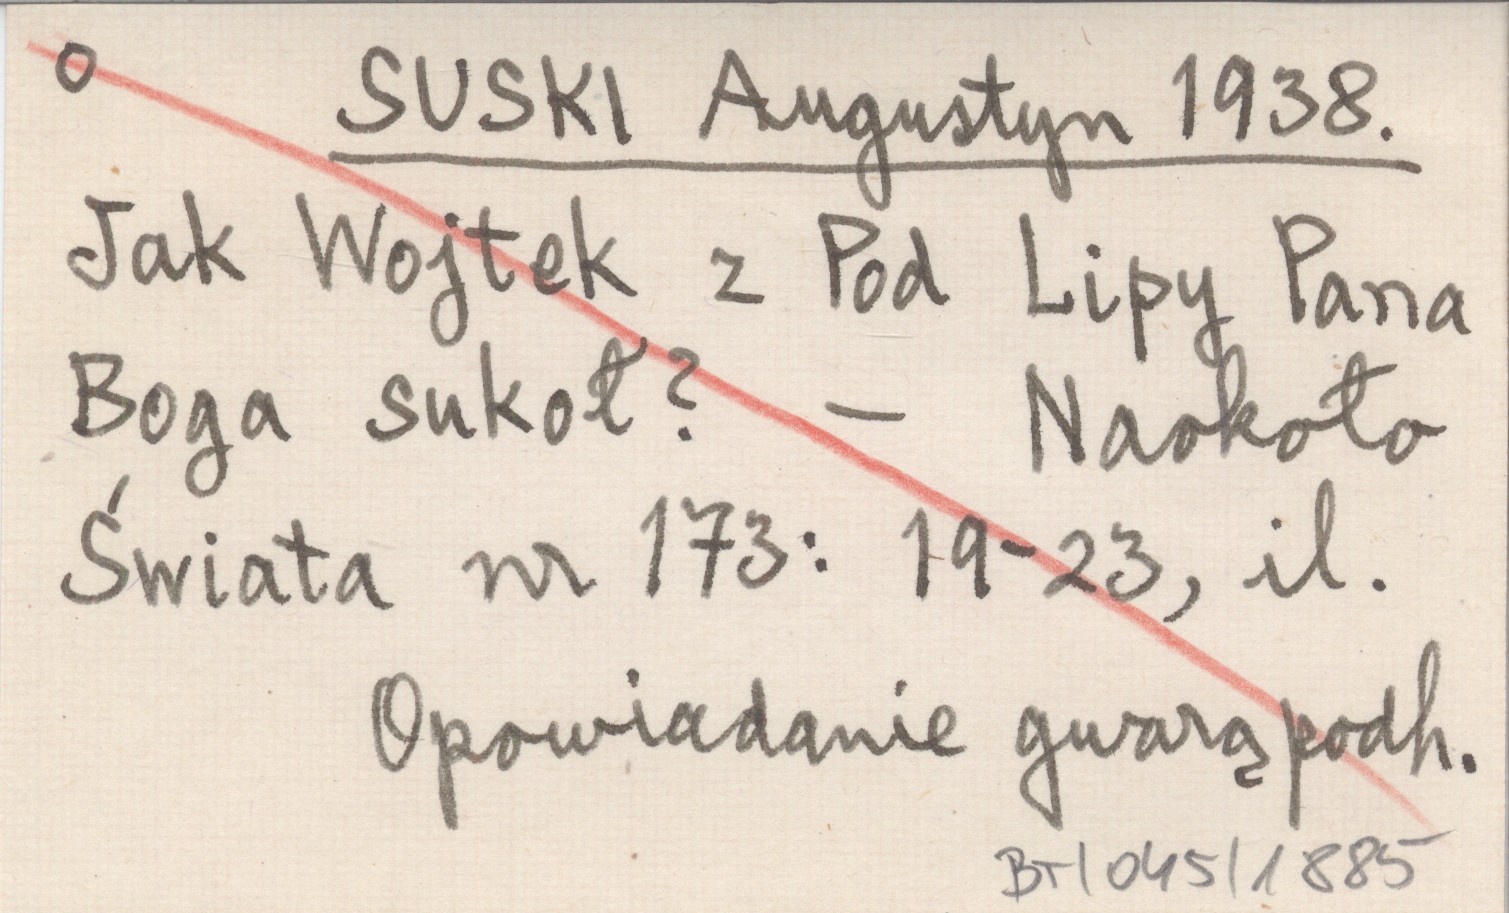 o SUSKI Augustyn 1938.
Jak Wojtek z Pod Lipy Pana
Boga sukoł? — Naokoło
Świata nr 173: 19-23, il.
Opowiadanie gwarą podh.
BT/045/1885